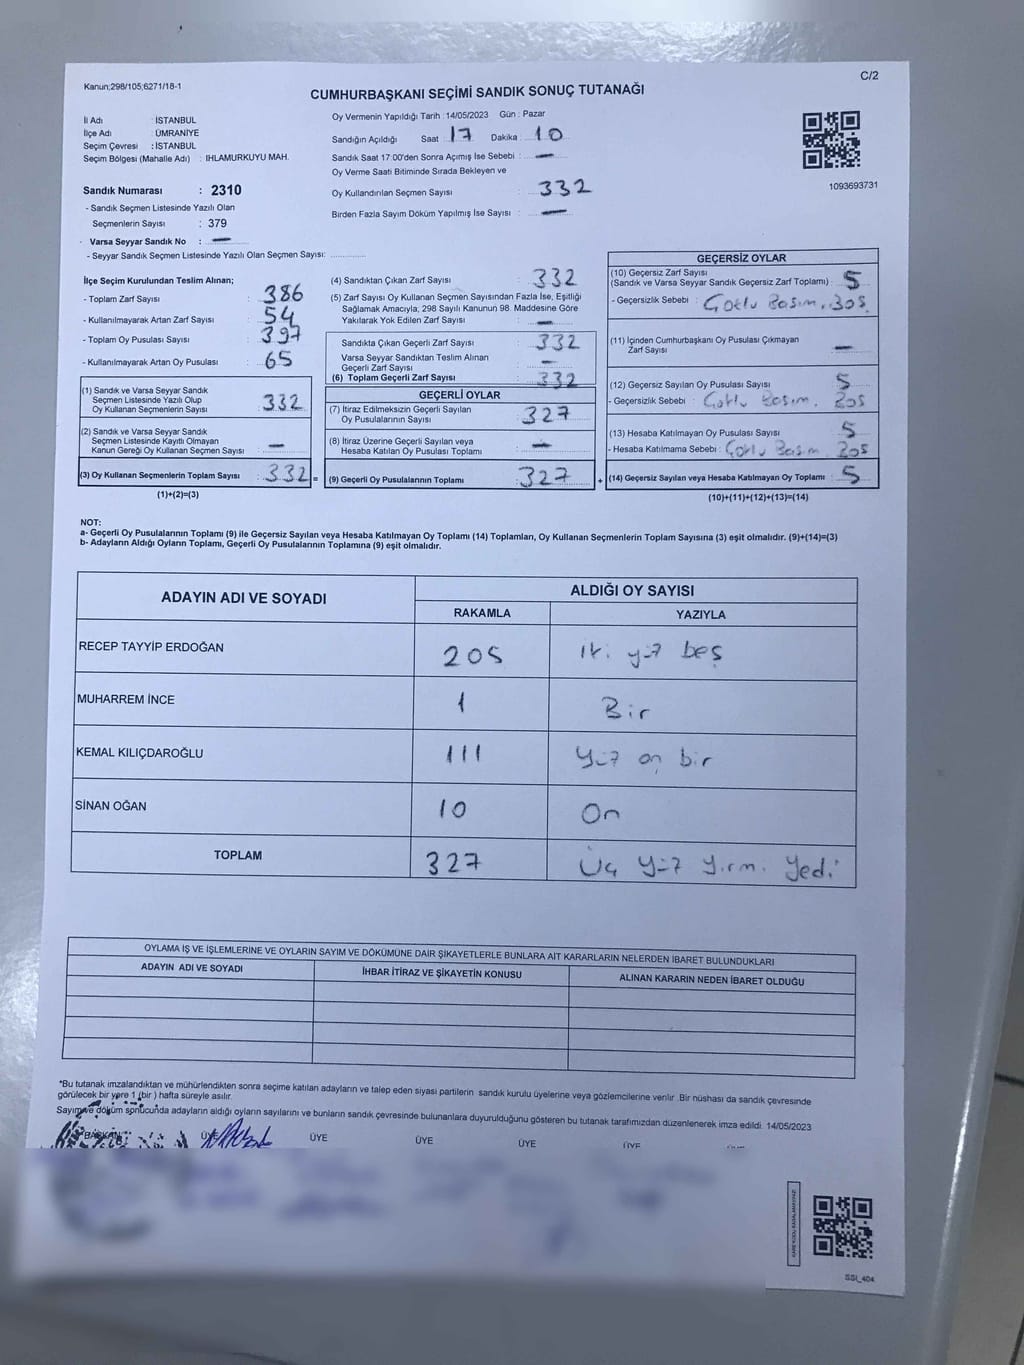 Kanun;298/105;6271/18-1
C/2
CUMHURBAŞKANI SEÇİMİ SANDIK SONUÇ TUTANAĞI
İl Adı : İSTANBUL
İlçe Adı : ÜMRANİYE
Seçim Çevresi : İSTANBUL
Seçim Bölgesi (Mahalle Adı) : IHLAMURKUYU MAH.
Sandık Numarası : 2310
- Sandık Seçmen Listesinde Yazılı Olan
Seçmenlerin Sayısı : 379
- Varsa Seyyar Sandık No : —
- Seyyar Sandık Seçmen Listesinde Yazılı Olan Seçmen Sayısı: ...............
Oy Vermenin Yapıldığı Tarih : 14/05/2023 Gün : Pazar
Sandığın Açıldığı Saat 17 Dakika 10
Sandık Saat 17:00'den Sonra Açımış İse Sebebi : —
Oy Verme Saati Bitiminde Sırada Bekleyen ve
Oy Kullandırılan Seçmen Sayısı : 332
Birden Fazla Sayım Döküm Yapılmış İse Sayısı : —
1093693731
İlçe Seçim Kurulundan Teslim Alınan;
- Toplam Zarf Sayısı : 386
- Kullanılmayarak Artan Zarf Sayısı : 54
- Toplam Oy Pusulası Sayısı : 397
- Kullanılmayarak Artan Oy Pusulası : 65
(1) Sandık ve Varsa Seyyar Sandık
Seçmen Listesinde Yazılı Olup
Oy Kullanan Seçmenlerin Sayısı : 332
(2) Sandık ve Varsa Seyyar Sandık
Seçmen Listesinde Kayıtlı Olmayan
Kanun Gereği Oy Kullanan Seçmen Sayısı : —
(3) Oy Kullanan Seçmenlerin Toplam Sayısı : 332 =
(1)+(2)=(3)
(4) Sandıktan Çıkan Zarf Sayısı : 332
(5) Zarf Sayısı Oy Kullanan Seçmen Sayısından Fazla İse, Eşitliği
Sağlamak Amacıyla; 298 Sayılı Kanunun 98. Maddesine Göre
Yakılarak Yok Edilen Zarf Sayısı : —
Sandıkta Çıkan Geçerli Zarf Sayısı : 332
Varsa Seyyar Sandıktan Teslim Alınan
Geçerli Zarf Sayısı : —
(6) Toplam Geçerli Zarf Sayısı : 332
GEÇERLİ OYLAR
(7) İtiraz Edilmeksizin Geçerli Sayılan
Oy Pusulalarının Sayısı : 327
(8) İtiraz Üzerine Geçerli Sayılan veya
Hesaba Katılan Oy Pusulası Toplamı : —
(9) Geçerli Oy Pusulalarının Toplamı : 327 +
GEÇERSİZ OYLAR
(10) Geçersiz Zarf Sayısı
(Sandık ve Varsa Seyyar Sandık Geçersiz Zarf Toplamı) : 5
- Geçersizlik Sebebi : Çoklu Basım, Boş
(11) İçinden Cumhurbaşkanı Oy Pusulası Çıkmayan
Zarf Sayısı : —
(12) Geçersiz Sayılan Oy Pusulası Sayısı : 5
- Geçersizlik Sebebi : Çoklu Basım. Boş
(13) Hesaba Katılmayan Oy Pusulası Sayısı : 5
- Hesaba Katılmama Sebebi : Çoklu Basım Boş
(14) Geçersiz Sayılan veya Hesaba Katılmayan Oy Toplamı : 5
(10)+(11)+(12)+(13)=(14)
NOT:
a- Geçerli Oy Pusulalarının Toplamı (9) ile Geçersiz Sayılan veya Hesaba Katılmayan Oy Toplamı (14) Toplamları, Oy Kullanan Seçmenlerin Toplam Sayısına (3) eşit olmalıdır. (9)+(14)=(3)
b- Adayların Aldığı Oyların Toplamı, Geçerli Oy Pusulalarının Toplamına (9) eşit olmalıdır.
ADAYIN ADI VE SOYADI
ALDIĞI OY SAYISI
RAKAMLA YAZIYLA
RECEP TAYYİP ERDOĞAN 205 iki yüz beş
MUHARREM İNCE 1 Bir
KEMAL KILIÇDAROĞLU 111 Yüz on bir
SİNAN OĞAN 10 On
TOPLAM 327 Üç yüz yirmi yedi
OYLAMA İŞ VE İŞLEMLERİNE VE OYLARIN SAYIM VE DÖKÜMÜNE DAİR ŞİKAYETLERLE BUNLARA AİT KARARLARIN NELERDEN İBARET BULUNDUKLARI
ADAYIN ADI VE SOYADI İHBAR İTİRAZ VE ŞİKAYETİN KONUSU ALINAN KARARIN NEDEN İBARET OLDUĞU
*Bu tutanak imzalandıktan ve mühürlendikten sonra seçime katılan adayların ve talep eden siyasi partilerin sandık kurulu üyelerine veya gözlemcilerine verilir. Bir nüshası da sandık çevresinde
görülecek bir yere 1 (bir ) hafta süreyle asılır.
Sayım ve döküm sonucunda adayların aldığı oyların sayılarını ve bunların sandık çevresinde bulunanlara duyurulduğunu gösteren bu tutanak tarafımızdan düzenlenerek imza edildi. 14/05/2023
BAŞKAN ÜYE ÜYE ÜYE ÜYE ÜYE
SSI_404